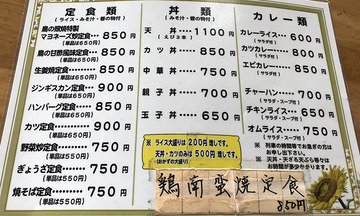 定食類
(ライス・みそ汁・香の物付)
鳥の照焼特製
マヨネーズ炒定食 850円
(単品は650円)
鳥の甘酢風味定食 850円
(単品は650円)
生姜焼定食 850円
(単品は650円)
ジンギスカン定食 900円
(単品は700円)
ハンバーグ定食 850円
(単品は650円)
カツ定食 900円
(単品は700円)
野菜炒定食 750円
(単品は550円)
ぎょうざ定食 750円
(単品は550円)
焼そば定食 750円
(単品は550円)
丼類
(みそ汁・香の物付)
天丼 1100円
(えび3本)
カツ丼 850円
中華丼 750円
親子丼 700円
玉子丼 650円
※ ライス大盛りは200円増しです。
天丼・カツのみは500円増しです。
(おかずの大盛り)
カレー類
カレーライス 600円
(サラダ付)
カツカレー 800円
(サラダ付)
エビカレー 850円
(サラダ付)
チャーハン 700円
(サラダ・スープ付)
チキンライス 650円
(サラダ・スープ付)
オムライス 750円
(サラダ・スープ付)
※ 列車の時間等でお急ぎの方は
お申し出下さい。
※ 天丼・天ざる天ぷら等々は
お時間がかかります。
鶏南蛮焼定食
850円